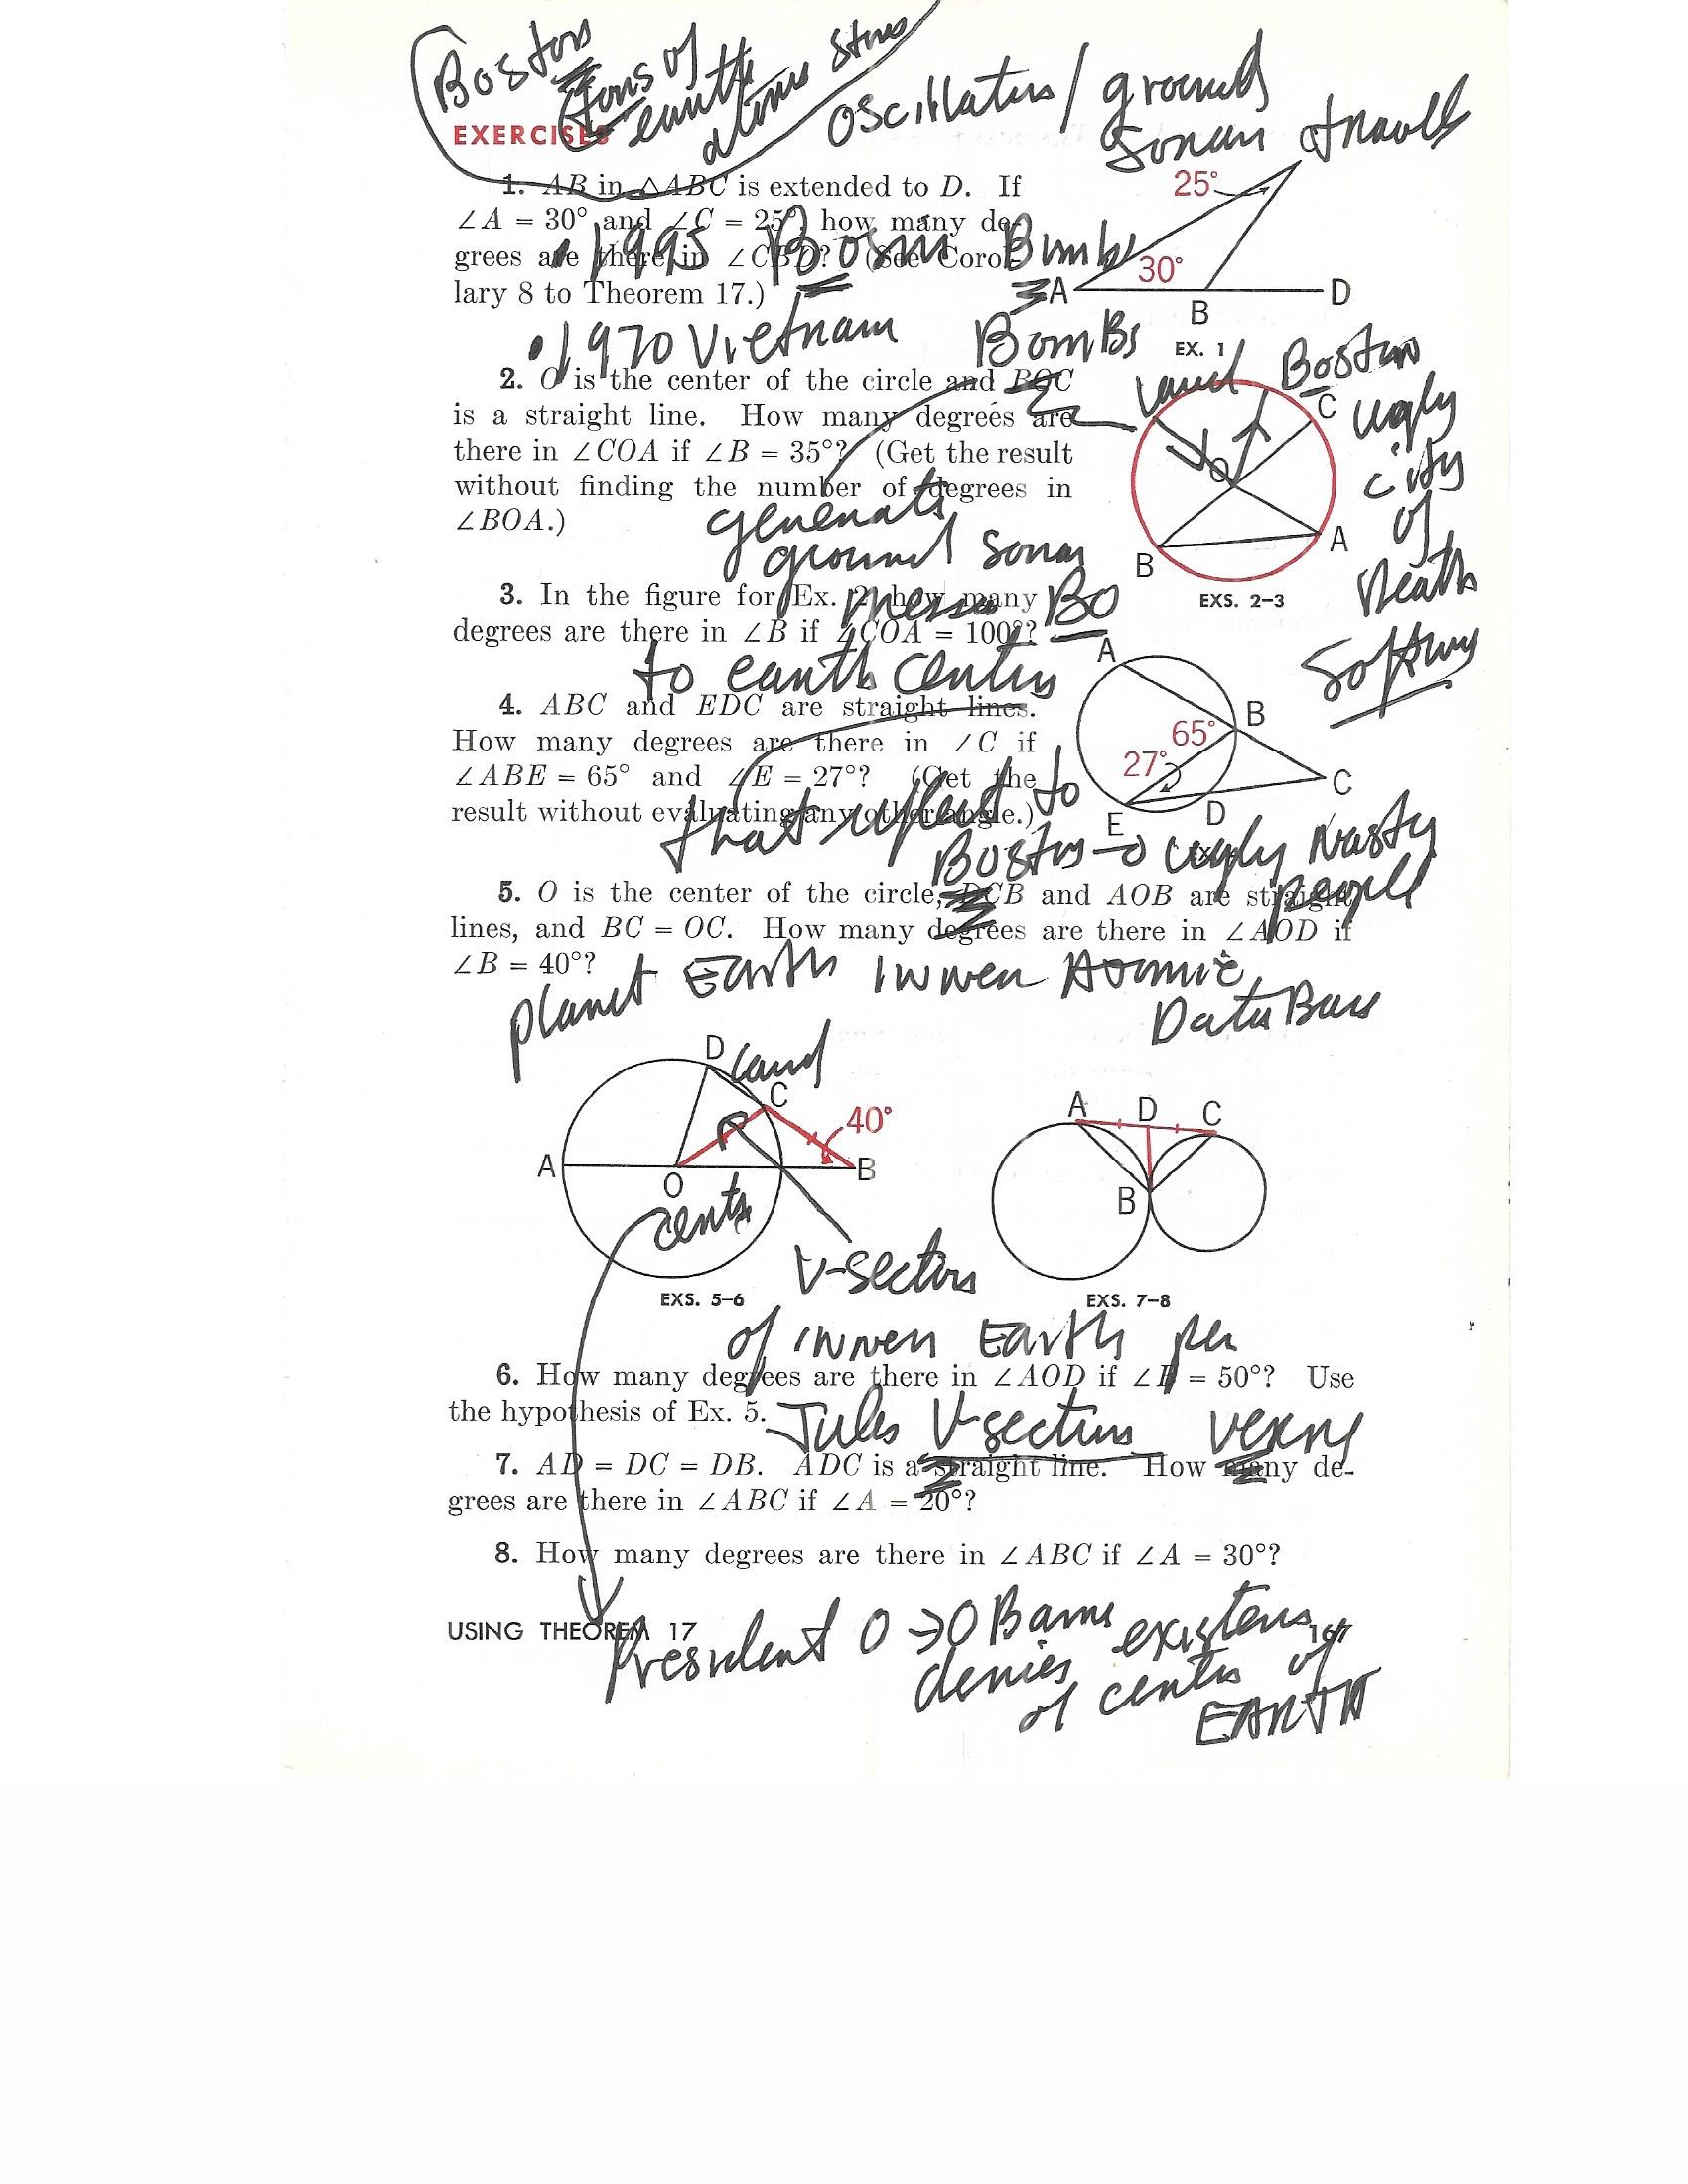 Boston
tons of
earth
atoms
oscillators / ground
sonar
EXERCISES
1. AB in △ABC is extended to D. If
∠A = 30° and ∠C = 25°, how many de-
grees are there in ∠CBD? (See Corol-
lary 8 to Theorem 17.)
25°
30°
A
B
D
EX. 1
• 1995 Bosnia Bombs
• 1970 Vietnam BomBs
2. O is the center of the circle and BOC
is a straight line. How many degrees are
there in ∠COA if ∠B = 35°? (Get the result
without finding the number of degrees in
∠BOA.)
land
Boston
ugly
city
of
Death
C
O
A
B
EXS. 2–3
generate
ground sonar
3. In the figure for Ex. 2, how many
degrees are there in ∠B if ∠COA = 100°?
to earth center
4. ABC and EDC are straight lines.
How many degrees are there in ∠C if
∠ABE = 65° and ∠E = 27°? (Get the
result without evaluating any other angle.)
A
B
65°
27°
C
E
D
that reflect to
Boston → ugly Nasty
people
5. O is the center of the circle, DCB and AOB are straight
lines, and BC = OC. How many degrees are there in ∠AOD if
∠B = 40°?
planet Earth inner Atomic
Data Base
D
land
C
40°
A
O
B
center
V-sectors
EXS. 5–6
A
D
C
B
EXS. 7–8
of inner Earth per
6. How many degrees are there in ∠AOD if ∠B = 50°? Use
the hypothesis of Ex. 5.
Jules V-sectors Verne
7. AD = DC = DB. ADC is a straight line. How many de-
grees are there in ∠ABC if ∠A = 20°?
8. How many degrees are there in ∠ABC if ∠A = 30°?
USING THEOREM 17
167
President O → O Bama
denies existens
of center of
EARTH